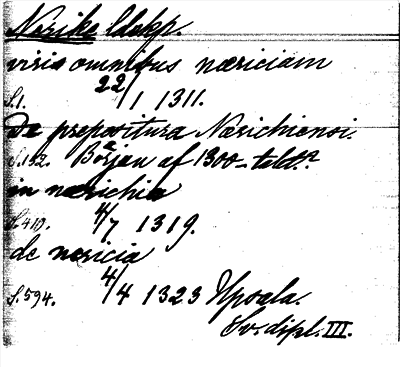 Nerike ldskp.
viris omnibus næriciam
S.1. 22/1 1311.
De prepositura Nærichiensi.
S.132. Början af 1300-talet?
in nærichia
S.410. 4/7 1319.
de nericia
S.594. 4/4 1323 Upsala.
Sv. dipl. III.